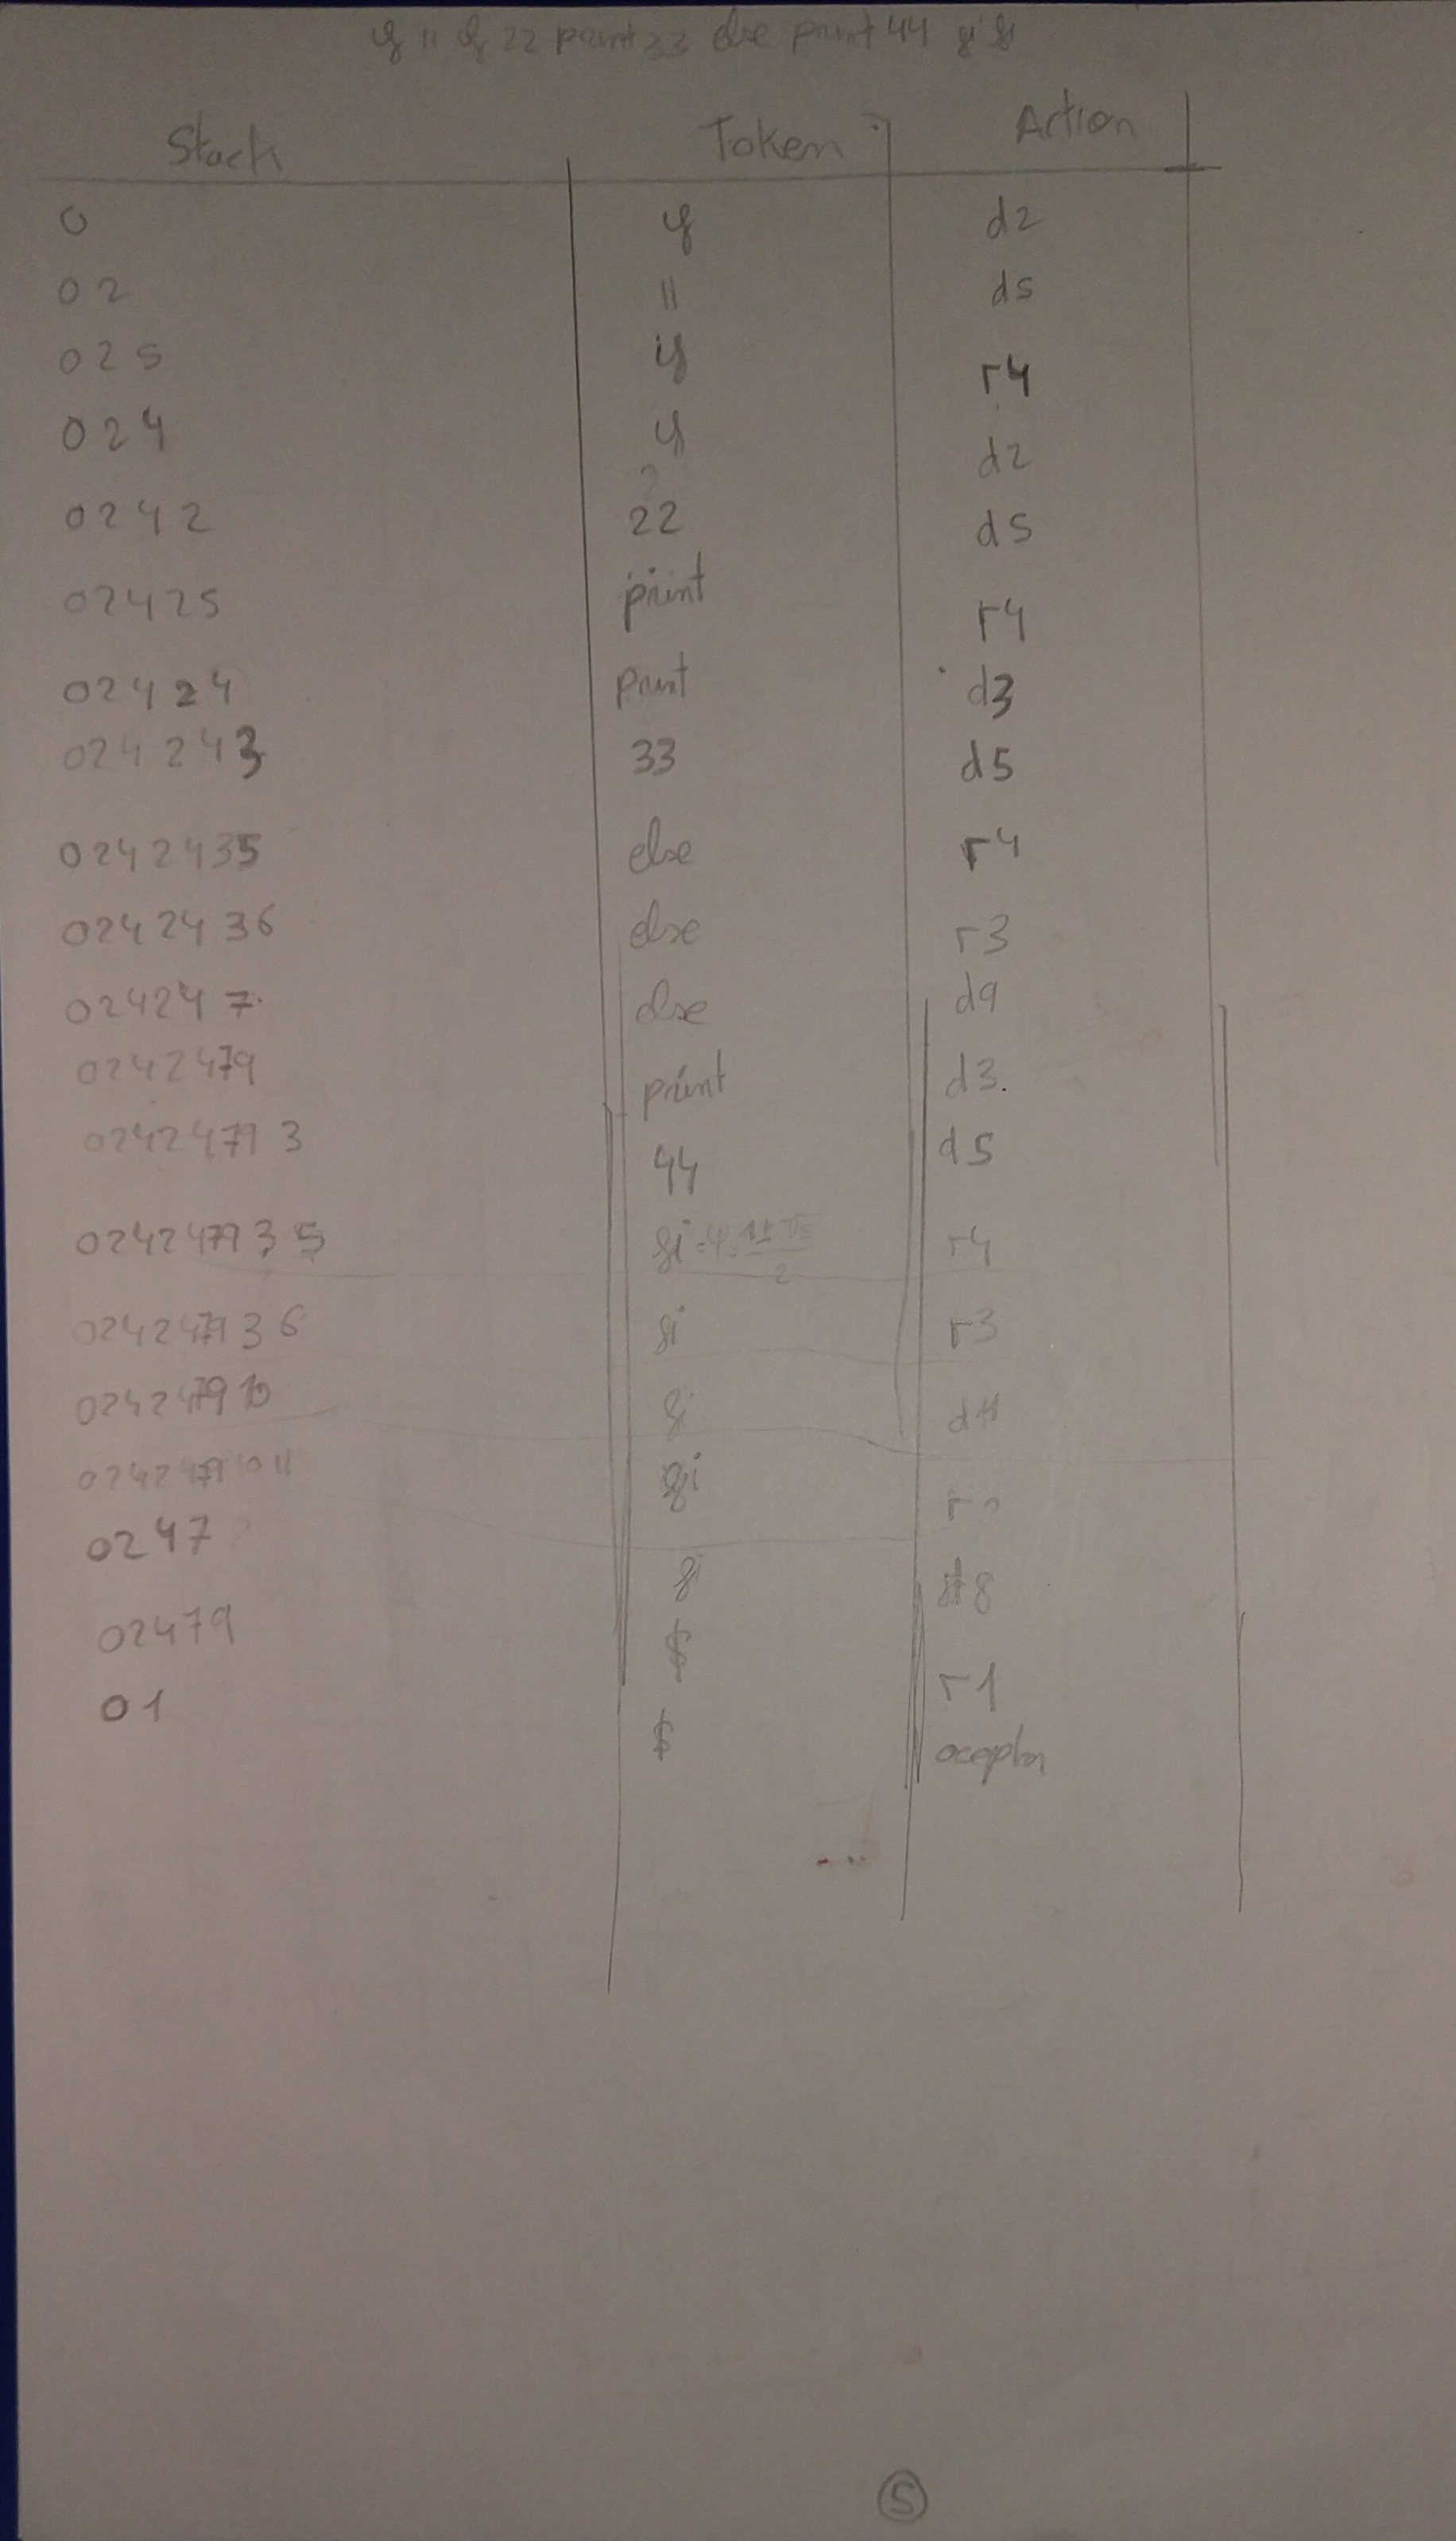 if 11 if 22 print 33 else print 44 fi fi
Stack Token Action
0 if d2
02 11 d5
025 if r4
024 if d2
0242 22 d5
02425 print r4
02424 print d3
024243 33 d5
0242435 else r4
0242436 else r3
024247 else d9
0242479 print d3.
02424793 44 d5
024247935 fi r4
024247936 fi r3
0242479 10 fi d11
0242479 10 11 fi
0247 fi 8
02479 $ r1
01 $ aceptar
5